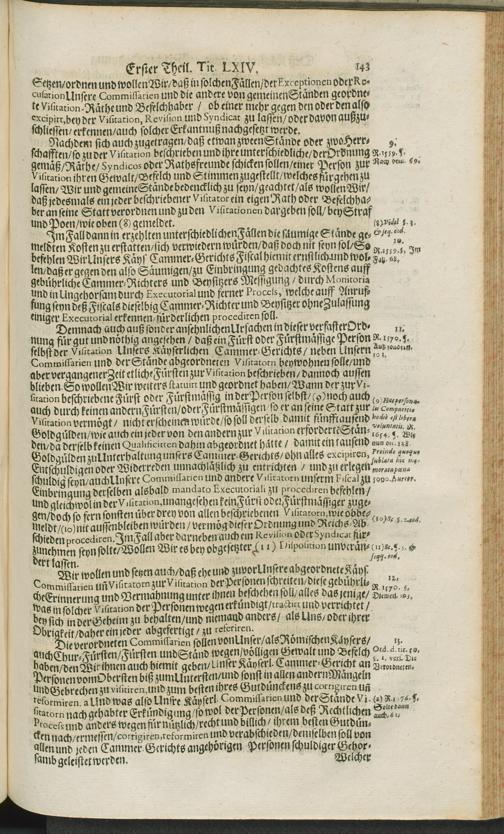 Erster Theil. Tit. LXIV. 143
Setzen/ordnen und wollen Wir/daß in solchen Fällen/der Exceptionen oder Re-
cusation Unsere Commissarien und die andere von gemeinen Ständen geordne-
te Visitation-Räthe und Befelchhaber / ob einer mehr gegen den oder den also
excipirt, bey der Visitation, Revision und Syndicat zu lassen/oder davon außzu-
schliessen/erkennen/auch solcher Erkantnuß nachgesetzt werde.
Nachdem sich auch zugetragen/daß etwan zween Stände oder zwo Herr-
schafften/so zu der Visitation beschrieben und ihre unterschiedliche/der Ordnung
gemäß/Räthe/Syndicos oder Rathsfreunde schicken sollen/einer Person zur
Visitation ihren Gewalt/Befelch und Stimmen zugestellt/welches für gehen zu
lassen/Wir und gemeine Stände bedencklich zu seyn/geachtet/als wollen Wir/
daß jedesmals ein jeder beschriebener Visitator ein eigen Rath oder Befelchha-
ber an seine Statt verordnen und zu den Visitationen dargeben soll/bey Straf
und Poen/wie oben (8) gemeldet.
Im Fall dann in erzehlten unterschiedlichen Fällen die säumige Stände ge-
meldten Kosten zu erstatten/sich verwiedern würden/daß doch nit seyn sol/So
befehlen Wir Unsers Käys. Cammer-Gerichts Fiscal hiemit ernstlich und wol-
len/daß er gegen den also Säumigen/zu Einbringung gedachtes Kostens auff
gebührliche Cammer-Richters und Beysitzers Messigung/durch Monitoria
und in Ungehorsam durch Executorial und ferner Process, welche auff Anruf-
fung seyn deß Fiscals dieselbig Cammer-Richter und Beysitzer ohne Zulassung
einiger Executorial erkennen/fürderlichen procediren soll.
Demnach auch auß sonder ansehnlichen Ursachen in dieser verfaster Ord-
nung für gut und nöthig angesehen/daß ein Fürst oder Fürstmässige Person
selbst der Visitation Unsers Käyserlichen Cammer-Gerichts/neben Unsern
Commissarien und der Stände abgeordneten Visitatorn beywohnen solle/und
aber vergangener Zeit etliche Fürsten zur Visitation beschrieben/dannoch aussen
blieben. So wollen Wir weiters statuirt und geordnet haben/Wann der zur Vi-
sitation beschriebene Fürst oder Fürstmässig in der Person selbst/(9) noch auch
auch durch keinen andern Fürsten/oder Fürstmässigen/so er an seine Statt zur
Visitation vermögt/nicht erscheinen würde/so soll derselb damit fünfftausend
Goldgülden/wie auch ein jeder von den andern zur Visitation erforderte Stän-
den/da derselb keinen Qualificirten dahin abgeordnet hätte/damit ein tausend
Goldgülden zu Unterhaltung unsers Cammer-Gerichts/ohn alles excipiren,
Entschuldigen oder Widerreden unnachläßlich zu entrichten/und zu erlegen
schuldig seyn/auch Unsere Commissarien und andere Visitatorn unserm Fiscal zu
Einbringung derselben alsbald mandato Executoriali zu procediren befehlen/
und gleichwol in der Visitation, unangesehen kein Fürst oder Fürstmässiger zuge-
gen/doch so fern sonsten über drey von allen beschriebenen Visitatorn, wie obbe-
meldt/(10) nit aussenbleiben würden/vermög dieser Ordnung und Reichs-Ab-
schieden procediren. Im Fall aber darneben auch ein Revision oder Syndicat für-
zunehmen seyn solte/Wollen Wir es bey obgesetzter (11) Disposition unverän-
dert lassen.
Wir wollen und setzen auch/daß ehe und zuvor Unsere abgeordnete Käys.
Commissarien uñ Visitatorn zur Visitation der Personen schreiten/diese gebührli-
che Erinnerung und Vermahnung unter ihnen beschehen soll/alles das jenige/
was in solcher Visitation der Personen wegen erkündigt/tractirt und verrichtet/
bey sich in der Geheim zu behalten/und niemand anders/als Uns/oder ihrer
Obrigkeit/daher ein jeder abgefertigt/zu referiren.
Die verordneten Commissarien sollen von Unser/als Römischen Käysers/
auch Chur-Fürsten/Fürsten und Ständ wegen/völligen Gewalt und Befelch
haben/den Wir ihnen auch hiemit geben/Unser Käyserl. Cammer-Gericht an
Personen vom Obersten biß zum Untersten/und sonst in allen andern Mängeln
und Gebrechen zu visitiren, und zum besten ihres Gutdünckens zu corrigiren uñ
reformiren. a Und was also Unsre Käyserl. Commissarien und der Stände Vi-
sitatorn nach gehabter Erkündigung/so wol der Personen/als deß Rechtlichen
Process und anders wegen für nützlich/recht und billich/ihrem besten Gutdün-
cken nach/ermessen/corrigiren, reformiren und verabschieden/demselben soll von
allen und jeden Cammer-Gerichts angehörigen Personen schuldiger Gehor-
samb geleistet werden. Welcher
9.
R. 1559. §.
(8) Vidd. §. 3.
& seq. eod.
10.
R. 1559. §. Im
Fall. 68.
11.
R. 1570. §.
(9) Hæc persona-
lis Comparitio
hodiè est libera
voluntatis, R.
1654. §. Wie
nun on. 128.
Proinde quoque
sublata hic me-
morata pœna
5000. Aureor.
(11) Sc. §. 5. &
seqq. eod.
12.
R. 1570. §.
13.
Ord. d. tit. 50.
§. 1. veri. Die
Verordneten.
(a) R. 1576. §.
Solte dann
auch. 61.